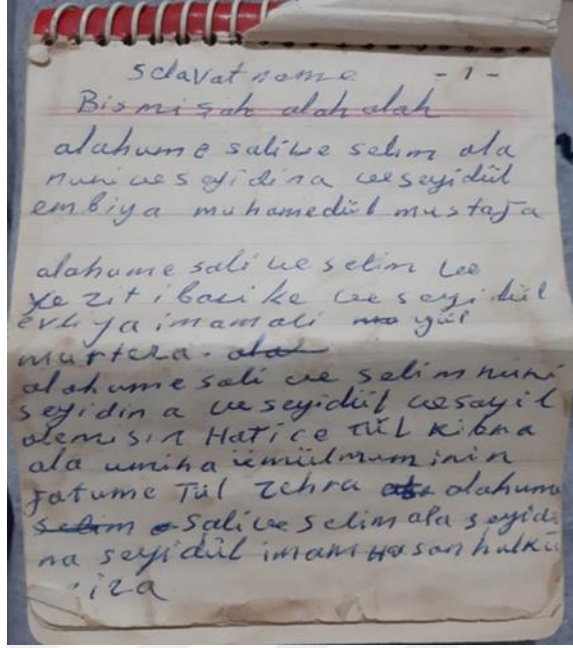 selavatname - 1 -
Bismişah alah alah
alahume salive selim ala
nuni ve seyidina ve seyidül
embiya muhamedül mustafa
alahume sali ve selim ve
ve seyidül
evliya imamali yül
murteza.
alahume sali ve selim nuni
seyidina ve seyidül vesayil
alemisin Hatice Tül Kibra
ala umina ümülmuminin
fatume Tül Zehra alahume
sali ve selim ala seyidi
na seyidül imam Hasan hulkü